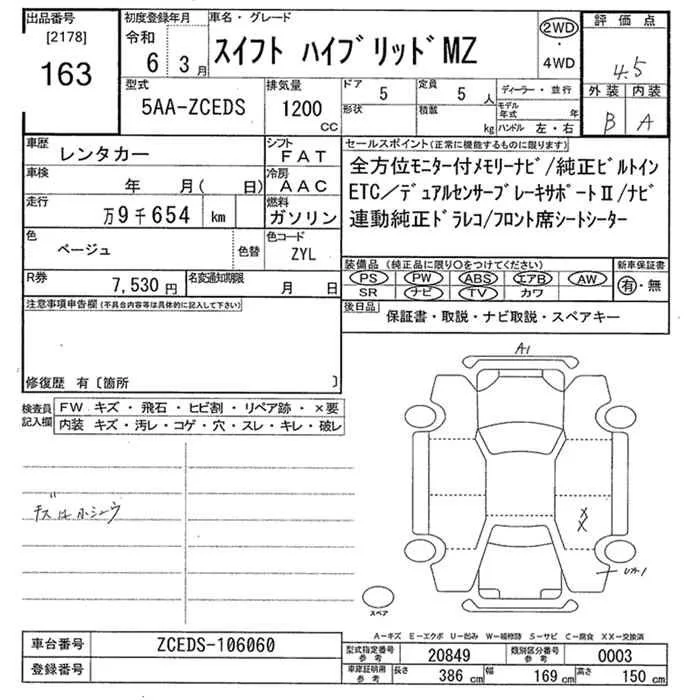 出品番号 [2178] 163
初度登録年月 令和 6年 3月
車名・グレード スイフト ハイブリッドMZ
2WD・4WD
評価点 4.5
外装 B 内装 A
型式 5AA-ZCEDS
排気量 1200 CC
ドア 5 形状
定員 5 人 積載 kg
ディーラー・並行
モデル年式 年
ハンドル 左・右
車歴 レンタカー
シフト FAT
車検 年 月( 日)
冷房 AAC
走行 万9千654 km
燃料 ガソリン
色 ベージュ 色替
色コード ZYL
R券 7,530円
名変通知期限 月 日
セールスポイント(正常に機能するものに限ります)
全方位モニター付メモリーナビ/純正ビルトイン
ETC/デュアルセンサーブレーキサポートⅡ/ナビ
連動純正ドラレコ/フロント席シートシーター
装備品 (純正品に限り○をつけてください)
PS PW ABS エアB AW
SR ナビ TV カワ
新車保証書 有・無
後日品 保証書・取説・ナビ取説・スペアキー
注意事項申告欄(不具合内容等は具体的に記入して下さい)
修復歴 有〔箇所 〕
検査員記入欄
FW キズ・飛石・ヒビ割・リペア跡・×要
内装 キズ・汚レ・コゲ・穴・スレ・キレ・破レ
A1
XX
スペア
A-キズ E-エクボ U-凹み W-補修跡 S-サビ C-腐食 XX-交換済
車台番号 ZCEDS-106060
登録番号
型式指定番号 参考 20849
類別区分番号 参考 0003
車庫証明用 参考 長さ 386 cm 幅 169 cm 高さ 150 cm